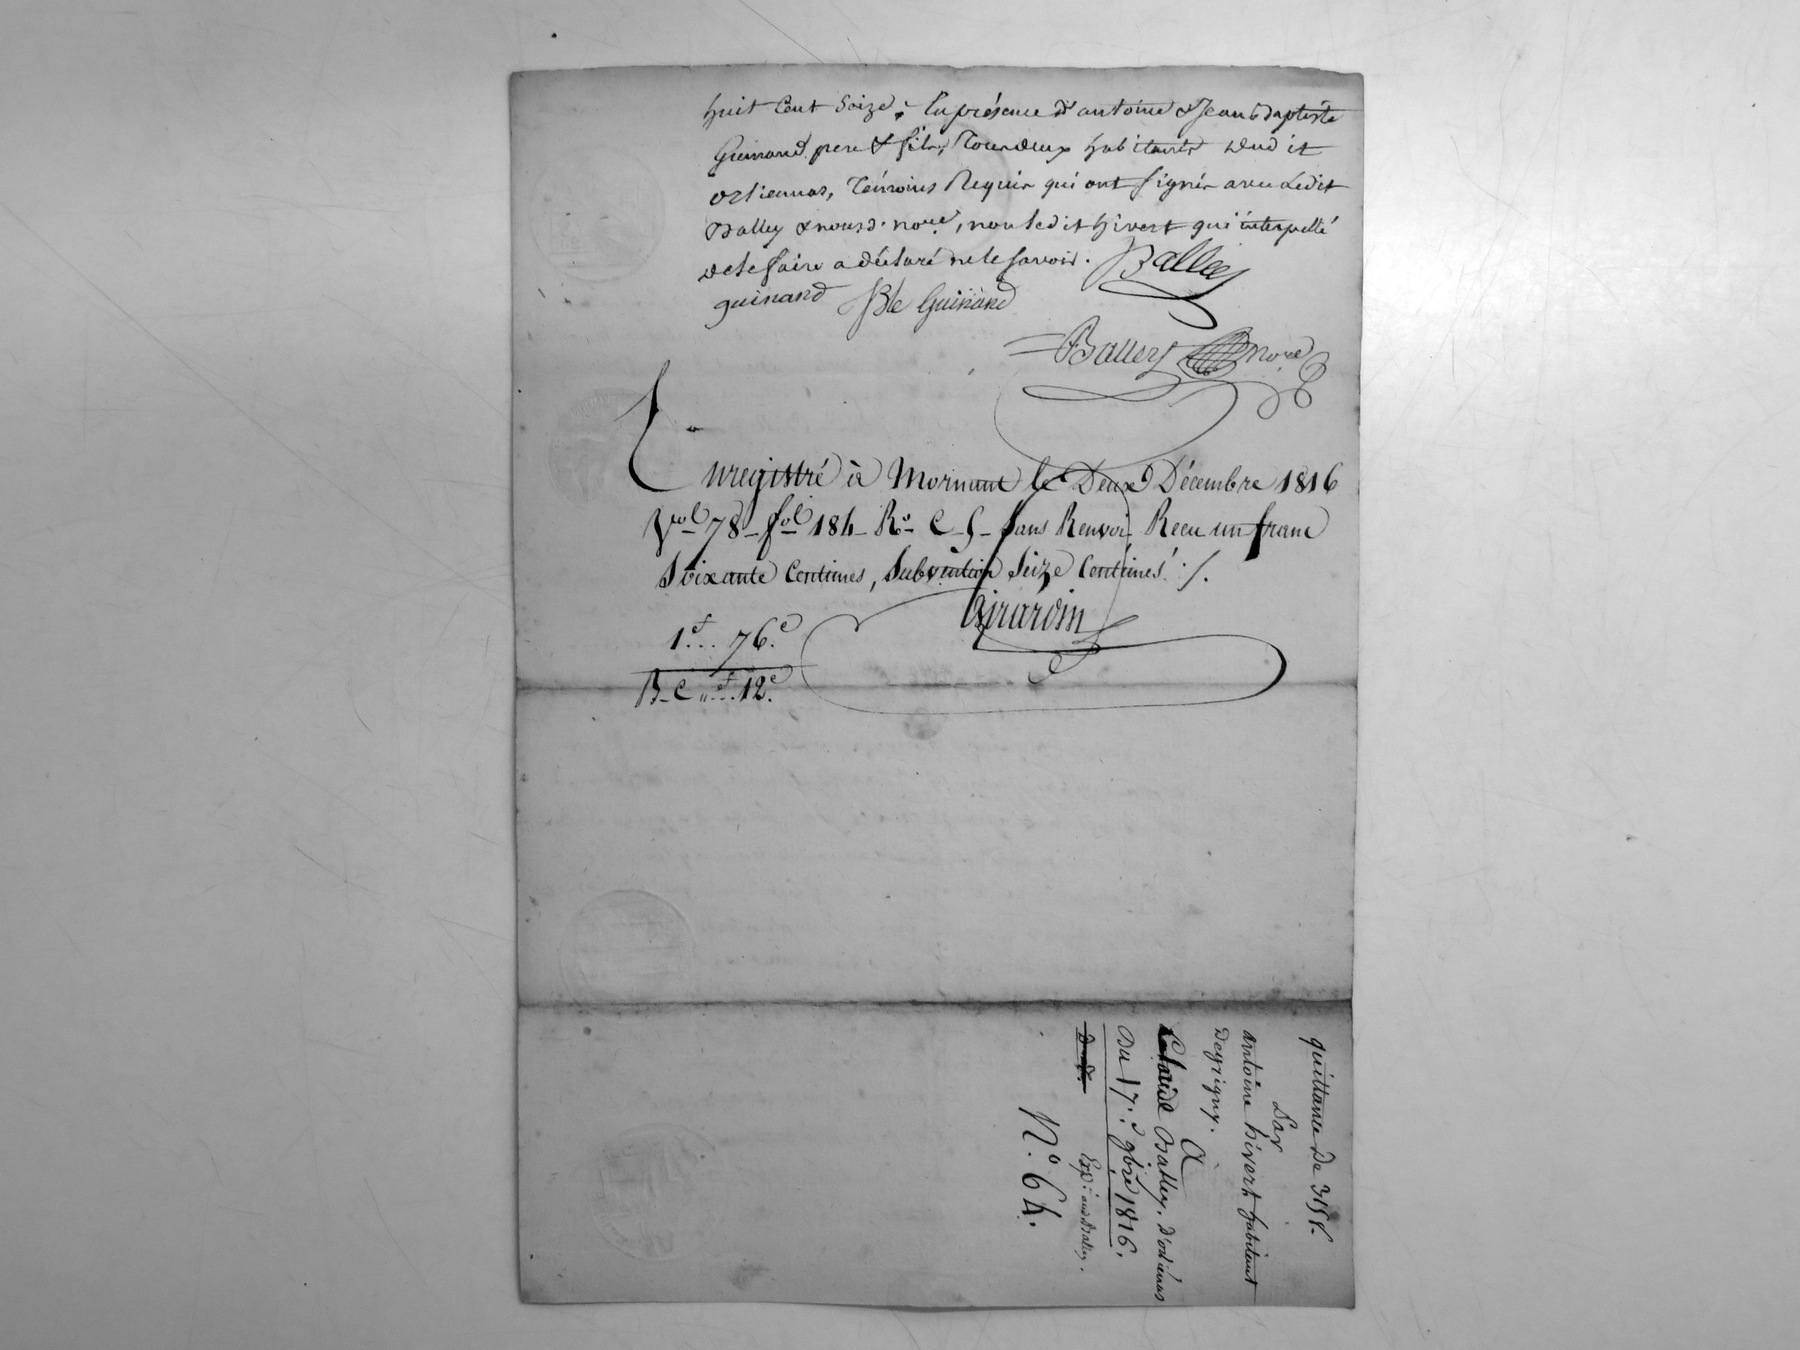 huit Cent Seize; En présence d'antoine & Jean baptiste
Guinand pere & fils, Tous deux habitants dud it
orlienas, Témoins Requis qui ont signés avec Ledit
Balley & nousd. nore, non ledit hivert qui interpellé
de le faire a déclaré ne le savoir. Balley
guinand JBte Guinand
Balley nore
Enregistré à Mornant le Deux Décembre 1816
Vol 78 - fol 184 - Ro C 5 - sans Renvoi - Recu un franc
Soixante Centimes, Subvention Seize Centimes ./.
Girardin
1f... 76c
B. C "f... 12c
quittance de 315f.
Par
antoine hivert habitant
degrigny.
A
Claude Balley, d'orliénas
Du 17. 9bre 1816.
Exp: aud. Balley.
No. 64.